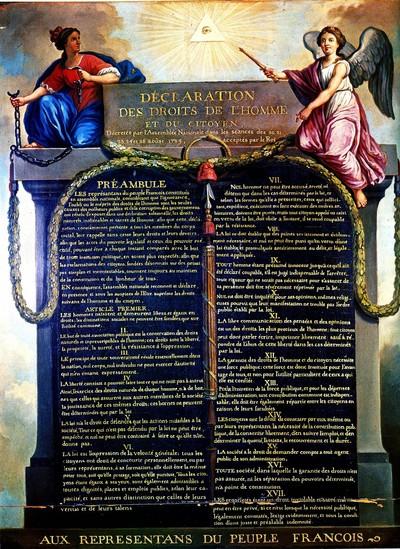 DÉCLARATION
DES DROITS DE L'HOMME
ET DU CITOYEN,
Décretés par l'Assemblée Nationale dans les séances des 20, 21
23, 24 et 26 août 1789, acceptés par le Roi
PRÉAMBULE
LES représentans du peuple François constitués
en assemblée nationale, considérant que l'ignorance,
l'oubli ou le mépris des droits de l'homme sont les seules
causes des malheurs publics et de la corruption des gouvernemens
ont résolu d'exposer dans une déclaration solemnelle, les droits
naturels, inaliénables et sacrés de l'homme; afin que cette décla-
ration, constamment présente à tous les membres du corps
social, leur rappelle sans cesse leurs droits et leurs devoirs;
afin que les actes du pouvoir législatif et ceux du pouvoir exé-
cutif, pouvant être à chaque instant comparés avec le but
de toute institution politique, en soient plus respectés; afin que
les réclamations des citoyens, fondées désormais sur des princi-
pes simples et incontestables, tournent toujours au maintien
de la constitution et du bonheur de tous.
EN conséquence, l'assemblée nationale reconnoît et déclare
en présence et sous les auspices de l'Etre suprême les droits
suivans de l'homme et du citoyen.
ARTICLE PREMIER.
LES hommes naissent et demeurent libres et égaux en
droits, les distinctions sociales ne peuvent être fondées que sur
l'utilité commune.
II.
LE but de toute association politique est la conservation des droits
naturels et imprescriptibles de l'homme; ces droits sont la liberté,
la propriété, la sureté, et la résistance à l'oppression.
III.
LE principe de toute souveraineté réside essentiellement dans
la nation, nul corps, nul individu ne peut exercer d'autorité
qui n'en émane expressément.
IV.
LA liberté consiste à pouvoir faire tout ce qui ne nuit pas à autrui
Ainsi, l'exercice des droits naturels de chaque homme, n'a de bor-
nes que celles qui assurent aux autres membres de la société
la jouissance de ces mêmes droits; ces bornes ne peuvent
être déterminées que par la loi
V.
LA loi n'a le droit de défendre que les actions nuisibles à la
société. Tout ce qui n'est pas défendu par la loi ne peut être
empêché, et nul ne peut être contraint à faire ce qu'elle n'or-
donne pas.
VI.
LA loi est l'expression de la volonté générale; tous les
citoyens ont droit de concourir personnellement, ou par
leurs représentans, à sa formation; elle doit être la même
pour tous, soit qu'elle protege, soit qu'elle punisse. Tous les cito-
yens étant égaux à ses yeux, sont également admissibles à
toutes dignités, places et emplois publics, selon leur ca-
pacité, et sans autres distinctions que celles de leurs
vertus et de leurs talens
VII.
NUL homme ne peut être accusé, arrêté ni
détenu que dans les cas déterminés par la loi, et
selon les formes qu'elle a prescrites, ceux qui sollici-
tent, expédient, exécutent ou font exécuter des ordres ar-
bitraires, doivent être punis; mais tout citoyen appelé ou saisi
en vertu de la loi, doit obéir à l'instant, il se rend coupable
par la résistance.
VIII.
LA loi ne doit établir que des peines strictement et évidem-
ment nécessaires, et nul ne peut être puni qu'en vertu d'une
loi établie et promulguée antérieurement au délit, et légale-
ment appliquée.
IX.
TOUT homme étant présumé innocent jusqu'à ce qu'il ait
été déclaré coupable, s'il est jugé indispensable de l'arrêter, toute
rigueur qui ne seroit pas nécessaire pour s'assurer de sa
personne doit être sévèrement réprimée par la loi.
X.
NUL ne doit être inquiété pour ses opinions, mêmes religi-
euses pourvu que leur manifestation ne trouble pas l'ordre
public établi par la loi.
XI.
LA libre communication des pensées et des opinions
est un des droits les plus précieux de l'homme; tout citoyen
peut donc parler, écrire, imprimer librement, sauf à ré-
pondre de l'abus de cette liberté dans les cas déterminés
par la loi.
XII.
LA garantie des droits de l'homme et du citoyen nécessite
une force publique; cette force est donc instituée pour l'avan-
tage de tous, et non pour l'utilité particulière de ceux à qui
elle est confiée.
XIII.
Pour l'entretien de la force publique, et pour les dépenses
d'administration, une contribution commune est indispen-
sable; elle doit être également répartie entre les citoyens en
raison de leurs facultés
XIV.
LES citoyens ont le droit de constater par eux-mêmes ou
par leurs représentans, la nécessité de la contribution pub-
lique, de la consentir librement, d'en suivre l'emploi, et d'en
déterminer la quotité, l'assiette, le recouvrement et la durée.
XV.
LA société a le droit de demander compte à tout agent
public de son administration.
XVI.
TOUTE société, dans laquelle la garantie des droits n'est
pas assurée, ni la séparation des pouvoirs déterminée,
n'a point de constitution.
XVII.
LES propriétés étant un droit inviolable et sacré, nul ne
peut en être privé, si ce n'est lorsque la nécessité publique,
légalement constatée, l'exige évidemment, et sous la condi-
tion d'une juste et préalable indemnité.
AUX REPRESENTANS DU PEUPLE FRANCOIS